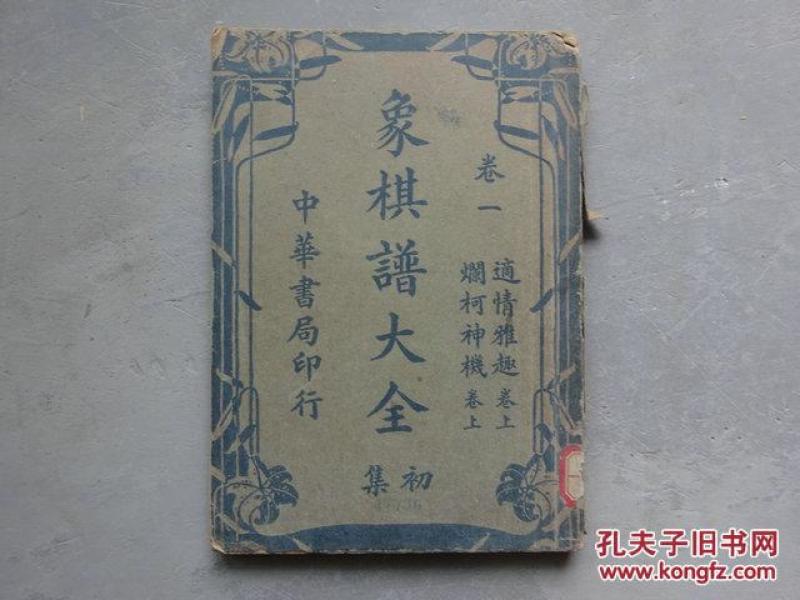 卷一
適情雅趣 卷上
爛柯神機 卷上
象棋譜大全
初集
中華書局印行
孔夫子旧书网
www.kongfz.com